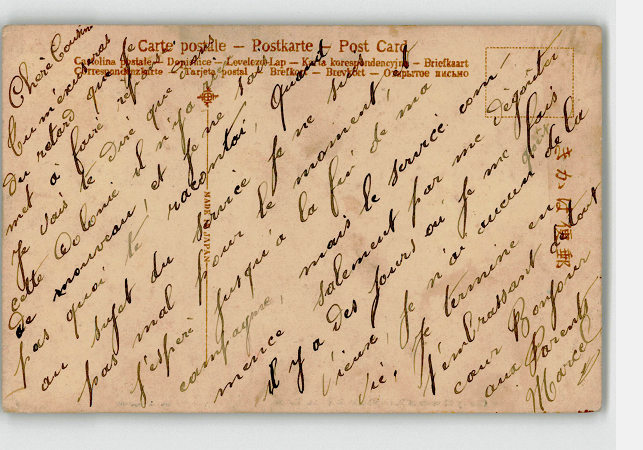 Carte postale — Postkarte — Post Card
Cartolina postale — Dopisnice — Levelezö-Lap — Karta korespondencyjna — Briefkaart
Correspondenzkarte — Tarjeta postal — Brefkort — Brevkort — Открытое письмо
MADE IN JAPAN
きかは便郵
Chère Cousine
Tu m'excuseras
du retard que je
met à faire réponse
Je vais te dire que dans
cette Colonie il n'y a rien
de nouveau, et je ne sais
pas quoi te racontai, quant
au sujet du service je ne suis
pas mal pour le moment, et
j'espère jusqu'à la fin de ma
campagne, mais le service com-
mence salement par me dégoûter
il y a des jours où je me fais
vieux, je n'ai aucun de la
vie, Je termine en
t'embrassant de tout
cœur Bonjour
aux Parents
Marcel